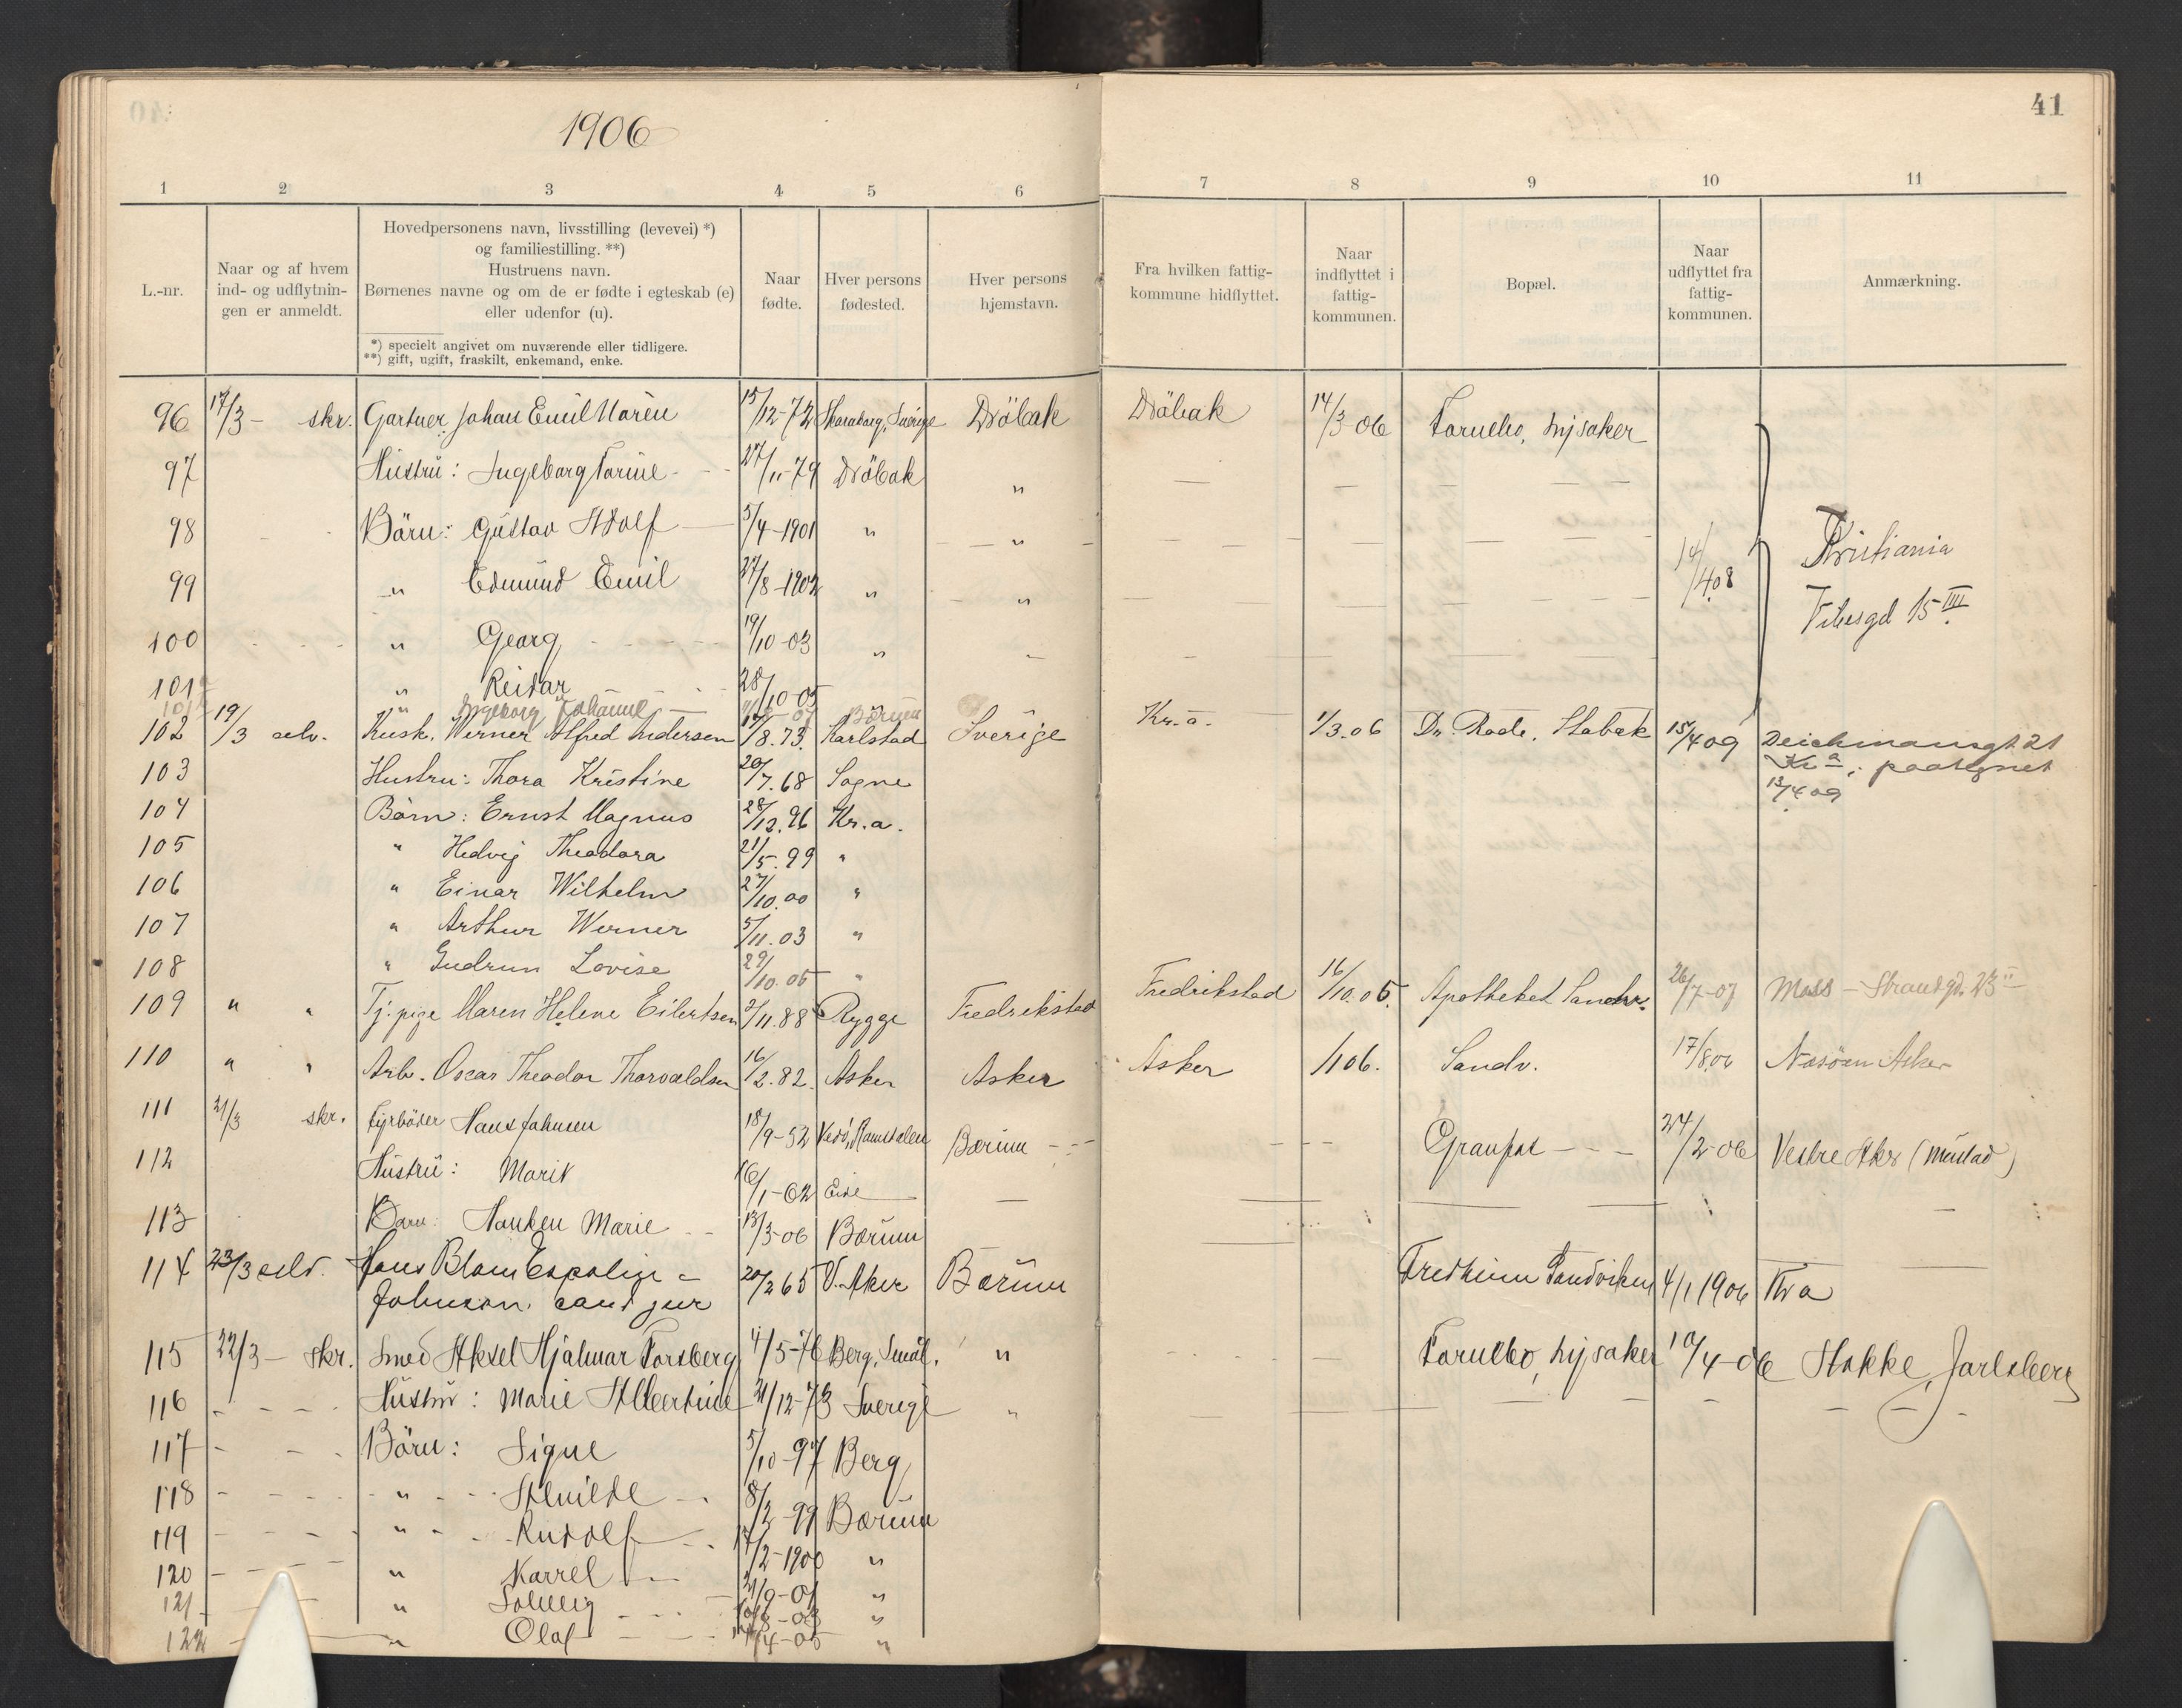 1906
41
1 2 3 4 5 6 7 8 9 10 11
L.-nr.
Naar og af hvem
ind- og udflytnin-
gen er anmeldt.
Hovedpersonens navn, livsstilling (levevei) *)
og familiestilling. **)
Hustruens navn.
Børnenes navne og om de er fødte i egteskab (e)
eller udenfor (u).
*) specielt angivet om nuværende eller tidligere.
**) gift, ugift, fraskilt, enkemand, enke.
Naar
fødte.
Hver persons
fødested.
Hver persons
hjemstavn.
Fra hvilken fattig-
kommune hidflyttet.
Naar
indflyttet i
fattig-
kommunen.
Bopæl.
Naar
udflyttet fra
fattig-
kommunen.
Anmærkning.
96 17/3 - skr. Gartner Johan Emil Norén 15/12-72 Skaraborg, Sverige Dröbak Dröbak 14/3-06 Fornebo, Lysaker
97 Hustrü: Ingeborg Torine 27/11-79 Dröbak "
98 Börn: Güstav Adolf 5/4-1901 " "
99 " Edmünd Emil 27/8-1902 " " 14/4.08 Kristiania
100 " Georg 19/10-03 " Vibesgd 15 IIII
101 " Reidar 28/10-05
" Ingeborg Johanne 07 Bärum
102 19/3 selv. Kusk. Werner Alfred Andersen 17/8.73. Karlstad Sverige Kr.a. 1/3.06 Dr. Rode, Stabæk 15/4 09 Deichmansgt. 21
Kr a; paategnet
13/4 09
103 Hustru: Thora Kristine 20/7.68 Sogne
104 Börn: Ernst Magnus 28/12.96 Kr.a.
105 " Hedvig Theodora 21/5.99 "
106 " Einar Wilhelm 27/10.00 "
107 " Arthur Werner 5/11.03 "
108 " Gudrun Lovise 29/10.05 "
109 " " Tj. pige Maren Helene Eilertsen 2/11.88 Rygge Fredrikstad Fredrikstad 16/10.05. Apotheket Sandv. 26/7-07 Moss - Strandgd. 23 II
110 " " Arb. Oscar Theodor Thorvaldsen 16/2.82. Asker Asker Asker 1/1 06. Sandv. 17/8.06 Nesöen Asker
111 21/3 skr. Fyrböder Hans Johnsen 18/9-52 Vedö, Ramsdalen Bærum - - - Granfos - - - 24/2-06 Vestre Aker (Mustad)
112 Hüstrü: Marit 16/1-62 Eide
113 Barn: Hanken Marie 13/3-06 Bærüm
114 23/3 selv. Hans Blom
Johnson. cand jur 20/2 65 V. Aker Bærüm Fredheim Sandviken 4/1 1906 Kr a
115 22/3 - skr. Smed Aksel Hjalmar Forsberg 4/5-76 Berg, Smål. " Fornebo, Lysaker 10/4-06 Stokke, Jarlsberg
116 Hüstrü: Marie Albertine 21/12-73 Sverige "
117 Börn: Signe 5/10-97 Berg
118 " Alvilde 8/2-99 Bærüm
119 " Rudolf 17/2-1900 "
120 " Karrel 21/9-01 "
121 " Solveig "
122 " Olaf 4-05 "